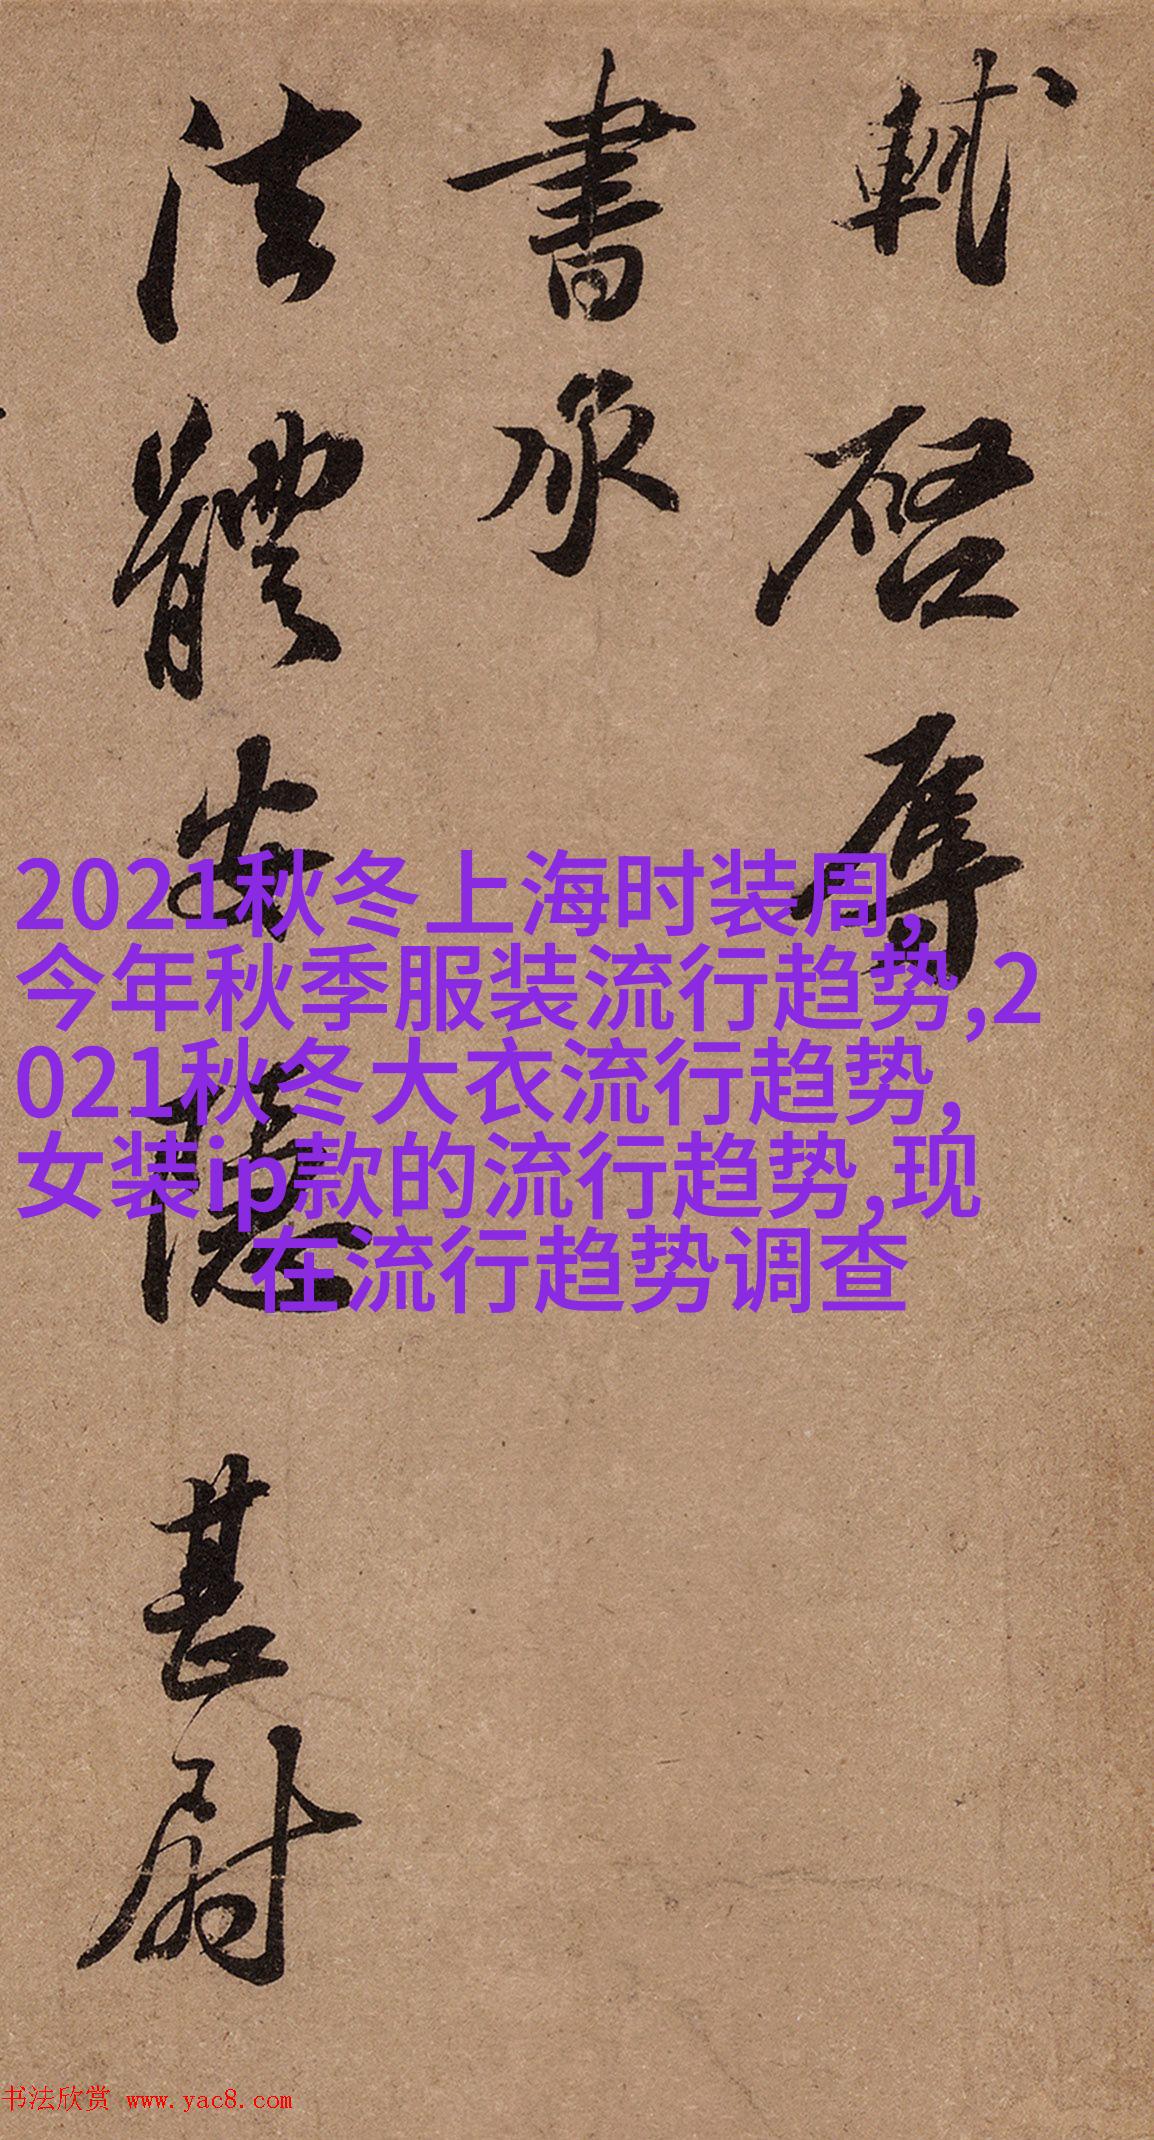 軾啓辱
書承
法體安隱甚慰
2021秋冬上海时装周,
今年秋季服装流行趋势,2
021秋冬大衣流行趋势,
女装ip款的流行趋势,现
在流行趋势调查
书法欣赏 www.yac8.com